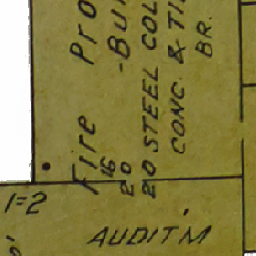 Fire Pro
16
20 -Bui
20 STEEL COL
CONC. & TI
BR.
1=2
AUDIT'M